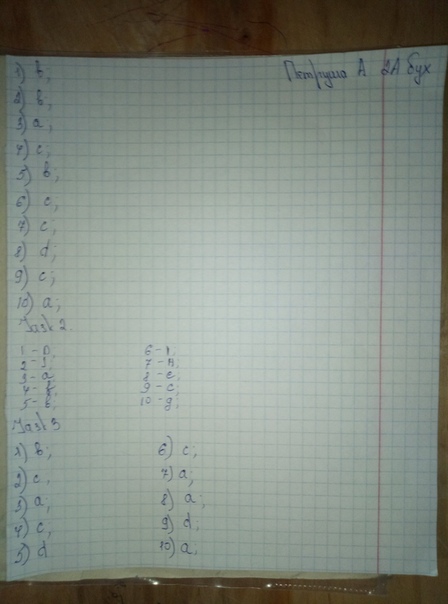 А 2А бух
1) b;
2) b;
3) a;
4) c;
5) b;
6) c;
7) c;
8) d;
9) c;
10) a;
Task 2
1 - D
3 - a
8 - c
9 - c;
10 - g;
Task 3
1) b;
2) c,
3) a;
4) c,
5) d
6) c;
7) a;
8) a;
9) d;
10) a;